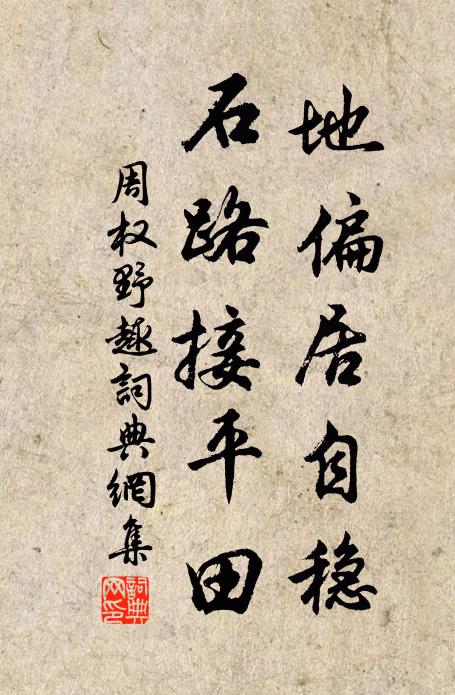 地偏居自稳
石路接平田
周权野趣詞典網集
詞典
网印